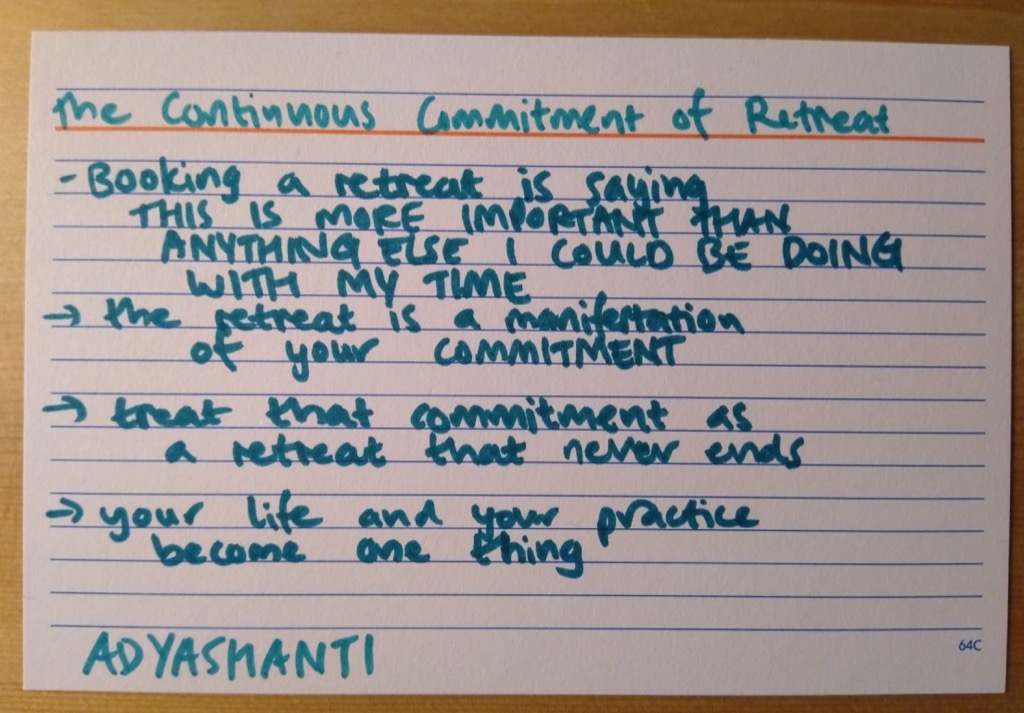 the Continuous Commitment of Retreat
- Booking a retreat is saying
THIS IS MORE IMPORTANT THAN
ANYTHING ELSE I COULD BE DOING
WITH MY TIME
→ the retreat is a manifestation
of your COMMITMENT
→ treat that commitment as
a retreat that never ends
→ your life and your practice
become one thing
ADYASHANTI
64C